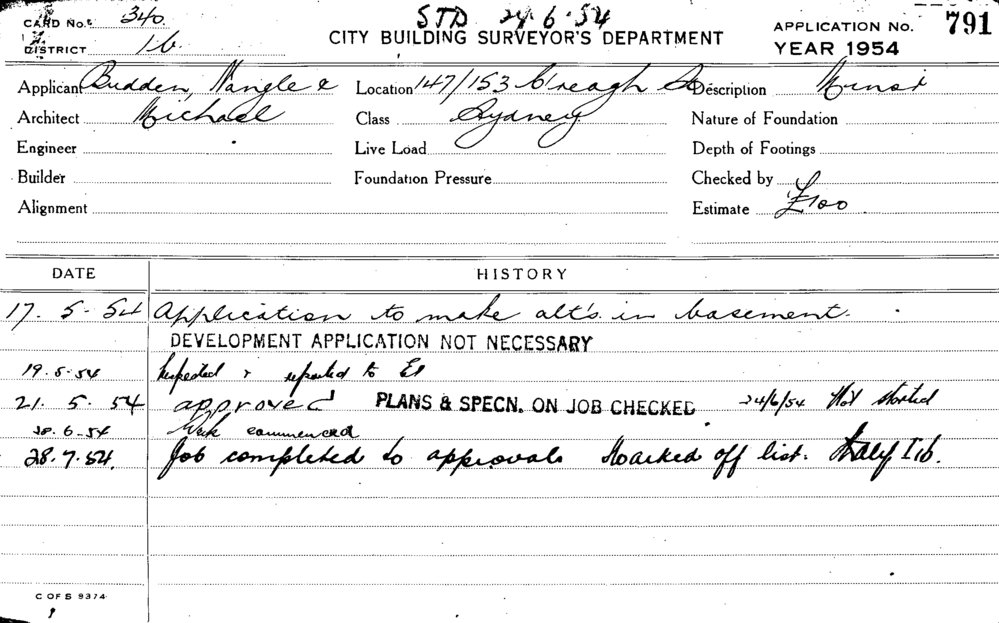 STD 24.6.54
CARD No. 340
CITY BUILDING SURVEYOR'S DEPARTMENT
APPLICATION No. 791
DISTRICT 1b
YEAR 1954
Applicant Budden, Nangle & Location 147/153 C'reagh St Description
Architect Michael Class Sydney Nature of Foundation
Engineer Live Load Depth of Footings
Builder Foundation Pressure Checked by
Alignment Estimate £100
DATE HISTORY
17. 5. 54 Application to make alt's. in basement.
DEVELOPMENT APPLICATION NOT NECESSARY
19.5.54 Inspected & reported to
21. 5. 54 approved PLANS & SPECN. ON JOB CHECKED 24/6/54 Not started
28.6.54 Work commenced
28.7.54. Job completed to approval. Marked off list.
C OF S 9374